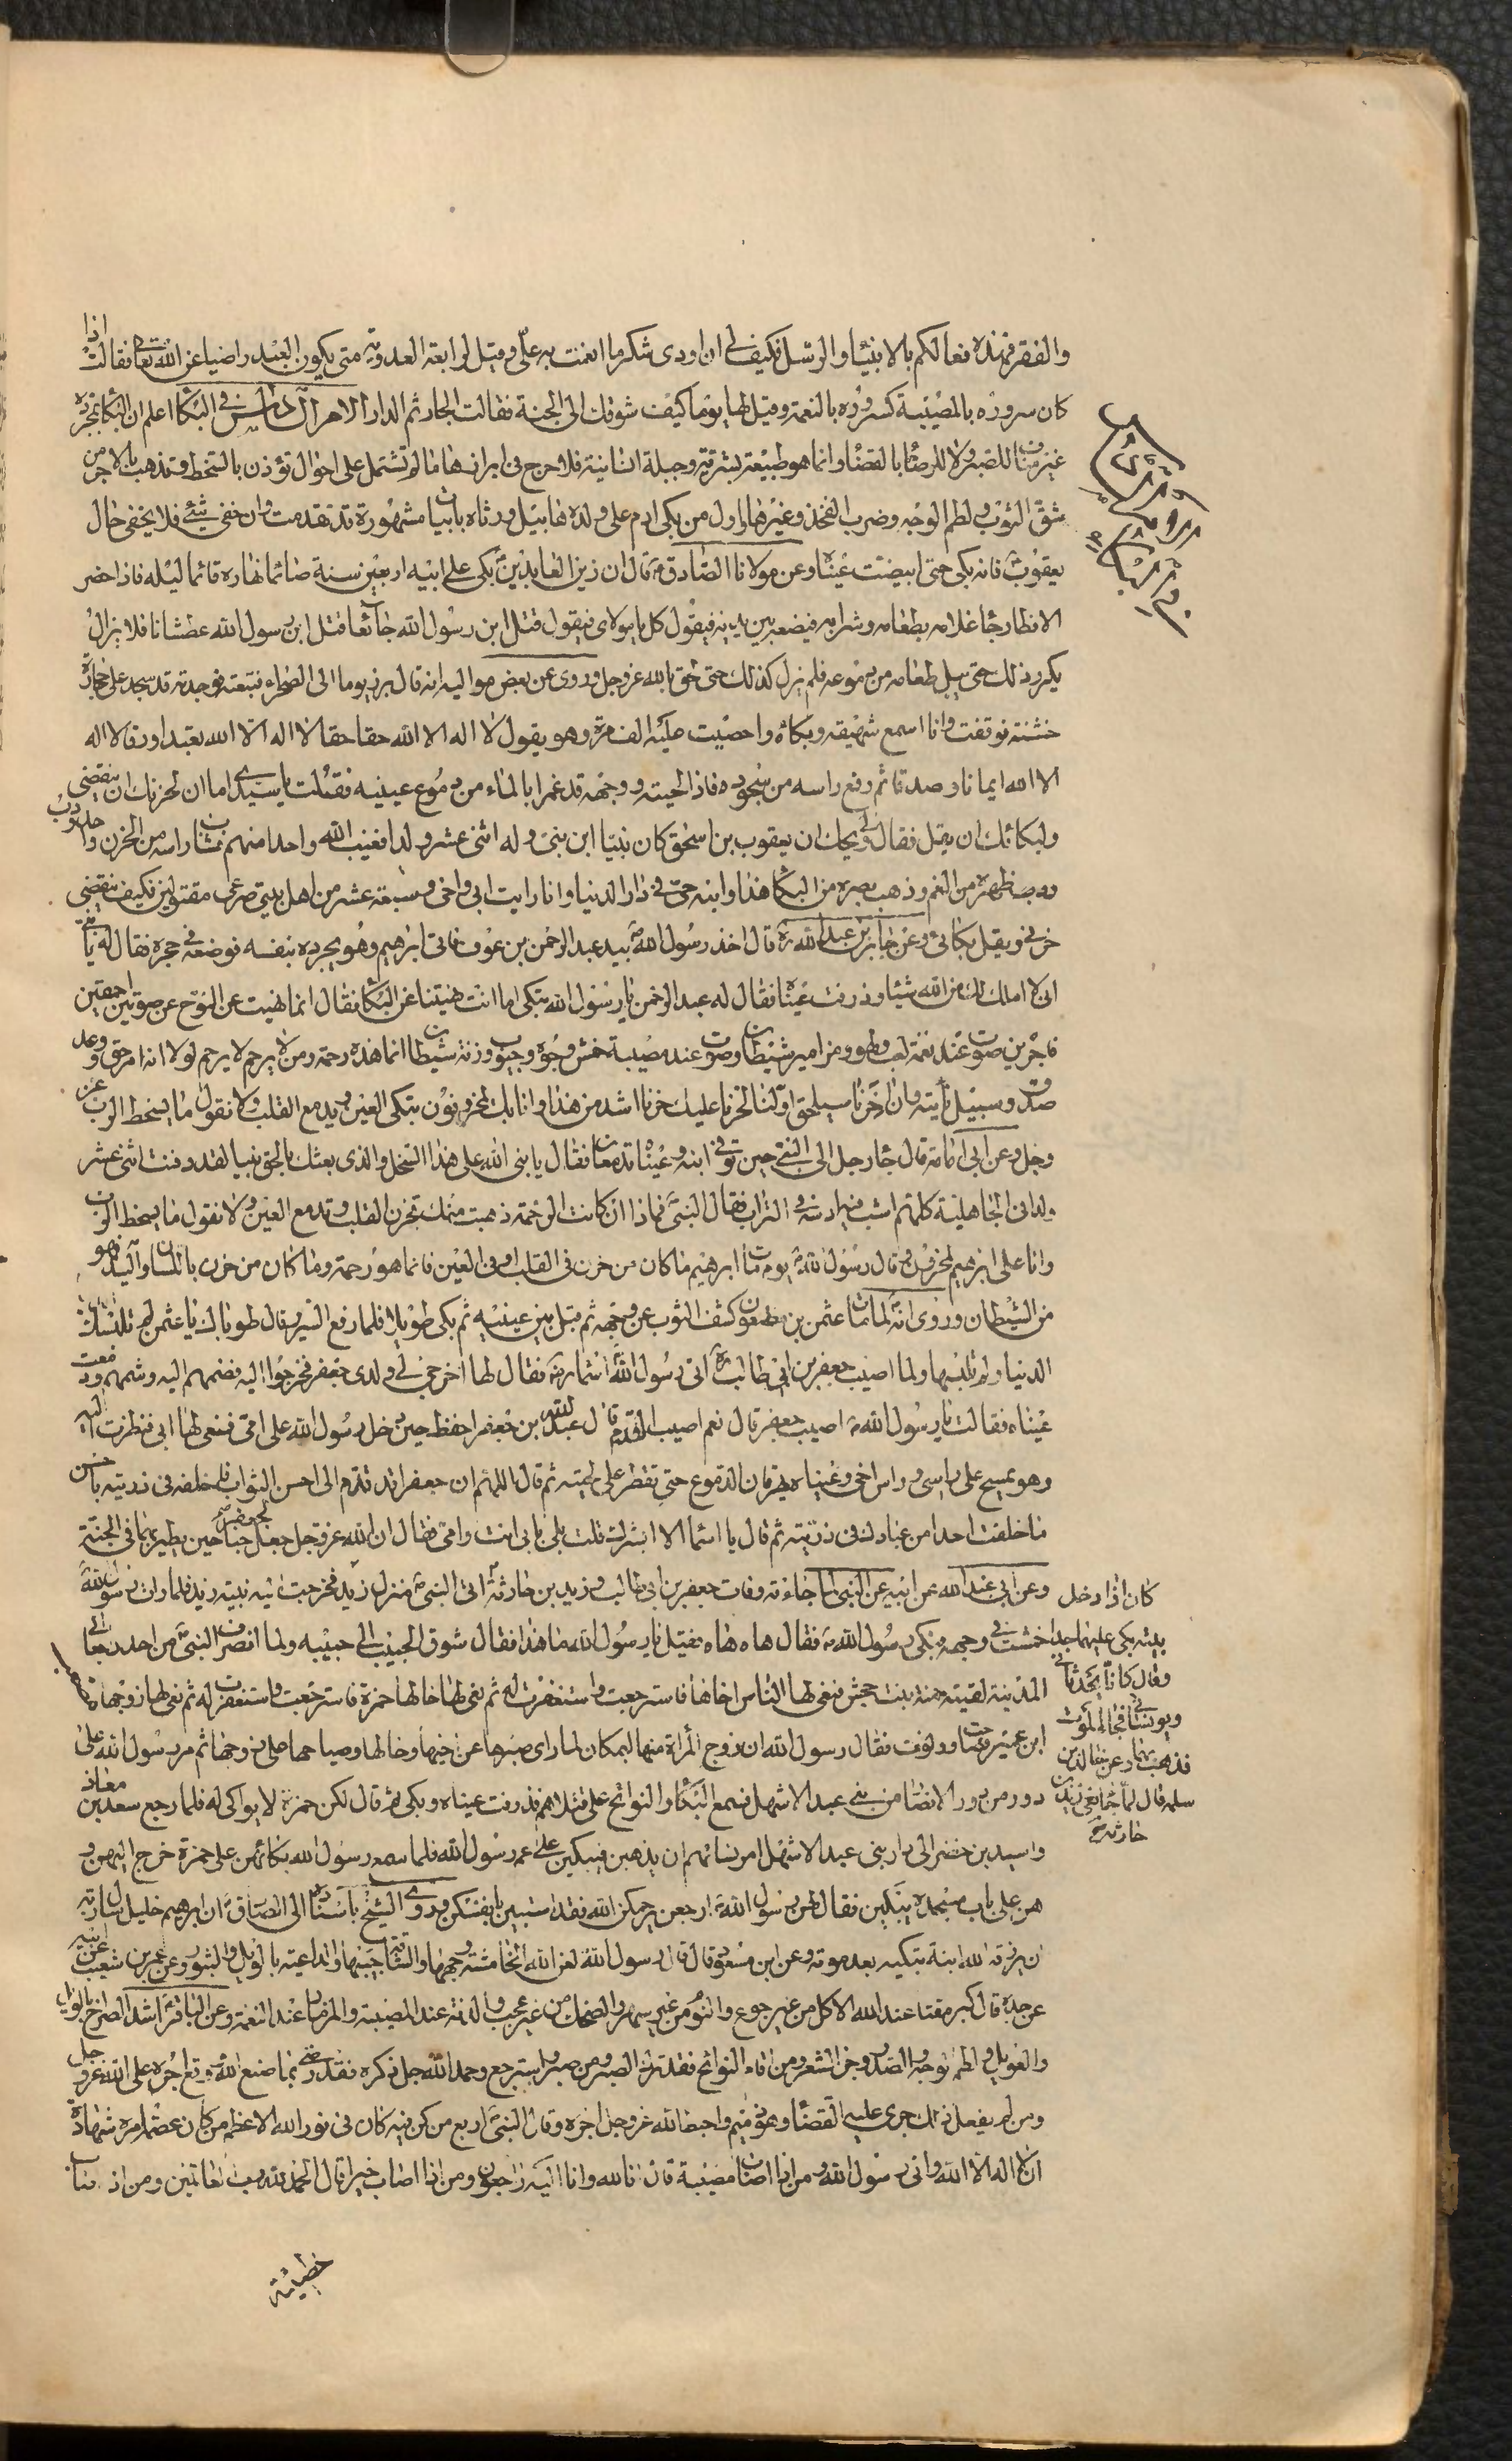 والفقر فهذه فعالكم بالانبياء والرسل فكيف لي ان اودى شكر ما انعمت به علي وقيل لرابعة العدوية متى يكون العبد راضيا عن الله تعالى فقالت اذا
كان سروره بالمصيبة كسروره بالنعمة وقيل لها يوما كيف شوقك الى الجنة فقالت الجار ثم الدار الامر في البكاء اعلم ان البكاء بمجرده
غير مناف للصبر ولا للرضا بالقضاء وانما هو طبيعة بشرية وجبلة انسانية فلا حرج في ابرازها ما لم تشتمل على احوال تؤذن بالسخط وتذهب بالاجر من
شق الثوب ولطم الوجه وضرب الفخذ وغيرهما واول من بكى ادم على ولده هابيل ورثاه بابيات مشهورة قد تقدمت وان خفي شئ فلا يخفى حال
يعقوب فانه بكى حتى ابيضت عيناه وعن مولانا الصادق قال ان زين العابدين بكى على ابيه اربعين سنة صائما نهاره قائما ليله فاذا حضر
الافطار جاء غلامه بطعامه وشرابه فيضعه بين يديه فيقول كل يا مولاي فيقول قتل ابن رسول الله جائعا قتل ابن رسول الله عطشانا فلا يزال
يكرر ذلك حتى يبل طعامه من دموعه فلم يزل كذلك حتى لحق بالله عز وجل وروى عن بعض مواليه انه قال برز يوما الى الصحراء فتبعته فوجدته قد سجد على حجارة
خشنة فوقفت وانا اسمع شهيقه وبكائه واحصيت عليه الف مرة وهو يقول لا اله الا الله حقا حقا لا اله الا الله تعبدا ورقا لا اله
الا الله ايمانا وصدقا ثم رفع راسه من سجوده فاذا لحيته ووجهه قد غمرا بالماء من دموع عينيه فقلت يا سيدي اما ان لحزنك ان ينقضي
ولبكائك ان يقل فقال لي ويحك ان يعقوب بن اسحق كان نبيا ابن نبي وله اثنى عشر ولدا فغيب الله واحدا منهم فشاب راسه من الحزن واحدودب
ظهره من الغم وذهب بصره من البكاء هذا وابنه حي في دار الدنيا وانا رايت ابي واخي وسبعة عشر من اهل بيتي صرعى مقتولين فكيف ينقضي
حزني ويقل بكائي وعن جابر بن عبد الله قال اخذ رسول الله بيد عبد الرحمن بن عوف فاتى ابرهيم وهو يجود بنفسه فوضعه في حجره فقال له يا بني
اني لا املك لك من الله شيئا وذرفت عيناه فقال له عبد الرحمن يا رسول الله تبكى اما انت نهيتنا عن البكاء فقال انما نهيت عن النوح عن صوتين احمقين
فاجرين صوت عند نعمة لعب ولهو ومزامير شيطان وصوت عند مصيبة خمش وجوه وجيوب ورنة شيطان انما هذه رحمة ومن لا يرحم لا يرحم لولا انه امر حق ووعد
صدق وسبيل ناتيه وان اخرنا سيلحق اولنا لحزنا عليك حزنا اشد من هذا وانا بك لمحزونون تبكى العين ويدمع القلب ولا نقول ما يسخط الرب عز
وجل وعن ابى امامة قال جاء رجل الى النبي حين توفى ابنه وعيناه تدمعان فقال يا نبي الله على هذا السخل والذي بعثك بالحق نبيا لقد دفنت اثني عشر
ولدا في الجاهلية كلهم اشب منه ادسه في التراب فقال النبي فماذا ان كانت الرحمة ذهبت منك يحزن القلب وتدمع العين ولا نقول ما يسخط الرب
وانا على ابرهيم لمحزونون وقال رسول الله يوم مات ابرهيم ما كان من حزن في القلب او في العين فانما هو رحمة وما كان من حزن باللسان واليد فهو
من الشيطان وروى انه لما مات عثمن بن مظعون كشف الثوب عن وجهه ثم قبل بين عينيه ثم بكى طويلا فلما رفع السرير قال طوباك يا عثمن لم تلبسك
الدنيا ولم تلبسها ولما اصيب جعفر بن ابي طالب اتى رسول الله اسماء فقال لها اخرجي لي ولدى جعفر فخرجوا اليه فضمهم اليه وشمهم ودمعت
عيناه فقالت يا رسول الله اصيب جعفر قال نعم اصيب اليوم قال عبد الله بن جعفر احفظ حين دخل رسول الله على امي فنعى لها ابي فنظرت اليه
وهو يمسح على راسى وراس اخى وعيناه تهرقان الدموع حتى تقطر على لحيته ثم قال اللهم ان جعفرا قد قدم الى احسن الثواب فاخلفه في ذريته باحسن
ما خلفت احدا من عبادك في ذريته ثم قال يا اسماء الا ابشرك قلت بلى بابي انت وامي فقال ان الله عز وجل جعل لجعفر جناحين يطير بهما في الجنة
وعن ابي عبد الله عن ابيه عن النبي لما جاءته وفات جعفر بن ابي طالب وزيد بن حارثة اتى النبي منزل زيد فخرجت اليه بنية زيد فلما رات رسول الله
خمشت في وجهه فبكى رسول الله فقال هاه هاه فقيل يا رسول الله ما هذا فقال شوق الحبيب الى حبيبه ولما انصرف النبي من احد راجعا الى
المدينة لقيته حمنة بنت جحش فنعى لها الناس اخاها فاسترجعت واستغفرت له ثم نعى لها خالها حمزة فاسترجعت واستغفرت له ثم نعى لها زوجها مصعب
ابن عمير فصاحت وولولت فقال رسول الله ان زوج المراة منها لبمكان لما راى صبرها عن اخيها وخالها وصياحها على زوجها ثم مر رسول الله على
دور من دور الانصار من بني عبد الاشهل فسمع البكاء والنوائح على قتلاهم فذرفت عيناه وبكى ثم قال لكن حمزة لا بواكى له فلما رجع سعد بن معاذ
واسيد بن حضير الى دار بني عبد الاشهل امر نسائهم ان يذهبن فيبكين على عم رسول الله فلما سمع رسول الله بكائهن على حمزة خرج اليهن و
هن على باب مسجده يبكين فقال لهن رسول الله ارجعن يرحمكن الله فقد اسيتن بانفسكن وروى الشيخ باسناده الى الصادق ان ابرهيم خليل سال ربه
ان يرزقه الله ابنة تبكيه بعد موته وعن ابن مسعود قال قال رسول الله لعن الله الخامشة وجهها والشاقة جيبها والداعية بالويل والثبور وعن عمرو بن شعيب عن ابيه
عن جده قال كبر مقتا عند الله الاكل من غير جوع والنوم من غير سهر والضحك من غير عجب والرنة عند المصيبة والمزمار عند النعمة وعن الباقر اشد الصراخ بالويل
والعويل ولطم الوجه والصدر وجز الشعر ومن اقام النوائح فقد ترك الصبر ومن صبر واسترجع وحمد الله جل ذكره فقد رضي بما صنع الله ووقع اجره على الله عز وجل
ومن لم يفعل ذلك جرى عليه القضاء وهو ذميم واحبط الله عز وجل اجره وقال النبي اربع من كن فيه كان في نور الله الاعظم من كان عصمة امره شهادة
ان لا اله الا الله واني رسول الله ومن اذا اصابته مصيبة قال انا لله وانا اليه راجعون ومن اذا اصاب خيرا قال الحمد لله رب العالمين ومن اذا اصاب
خطيئة
كان اذا دخل
بيته بكى عليهما جدا
وقال كانا يحدثاني
ويونساني فجاء الموت
فذهب بهما وعن خالد بن
سلمة قال لما جاء نعي زيد بن
حارثة